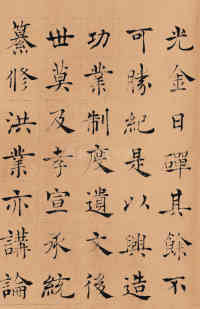 光金日磾其餘不
可勝紀是以興造
功業制度遺文後
世莫及孝宣承統
纂修洪業亦講論